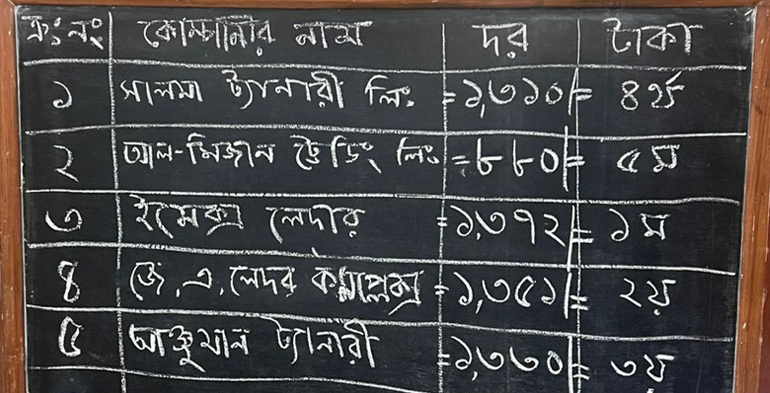 ক্রঃনং কোম্পানীর নাম দর টাকা
১ সালমা ট্যানারী লিঃ =১,৩১০/= ৪র্থ
২ আল-মিজান ট্রেডিং লিঃ =৮৮০/= ৫ম
৩ ইমেক্স লেদার =১,৩৭২/= ১ম
৪ জে,এ,লেদার কমপ্লেক্স =১,৩৫১/= ২য়
৫ আঞ্জুমান ট্যানারী =১,৩৩০/= ৩য়